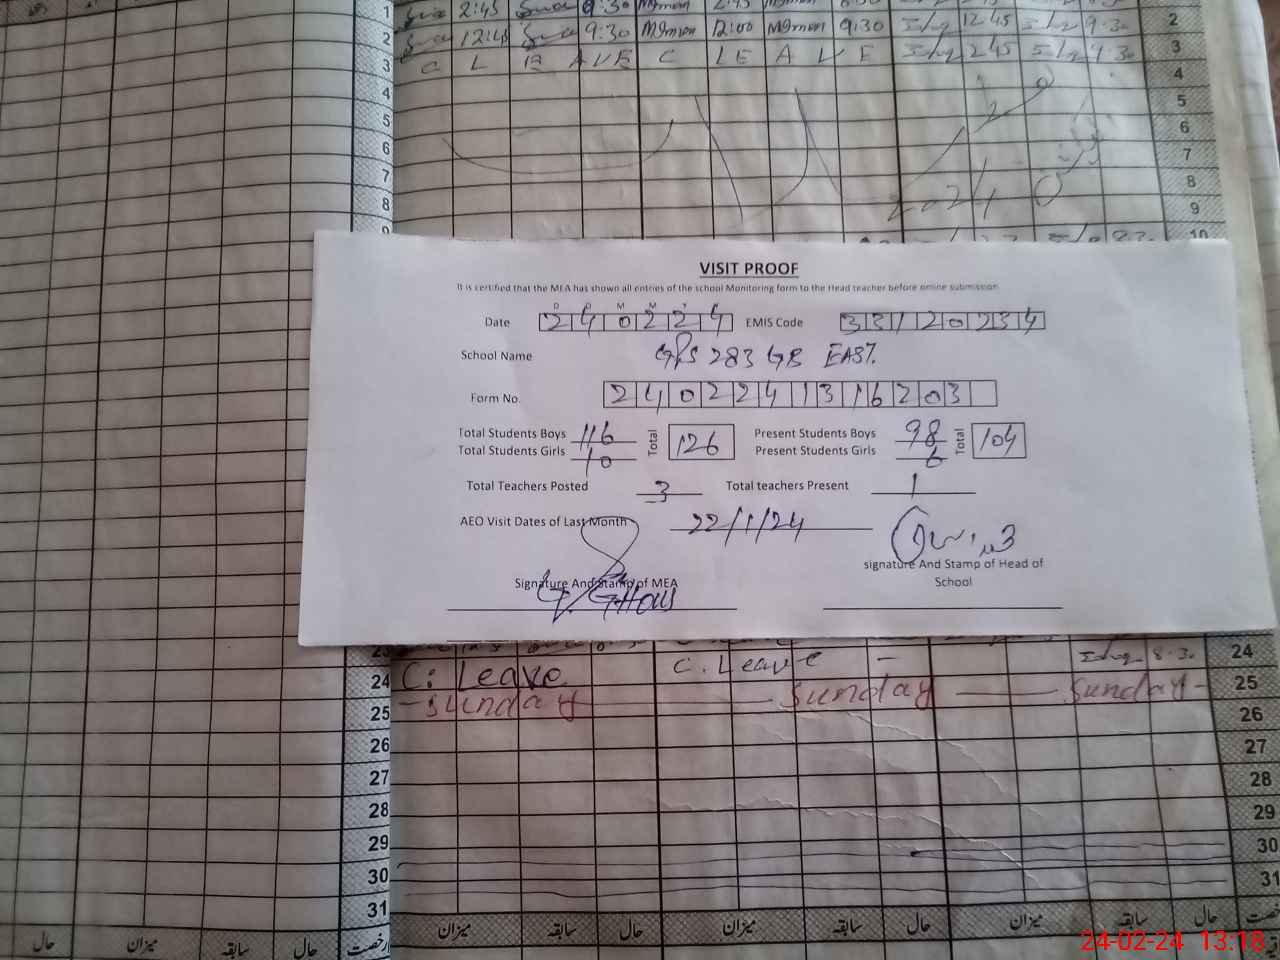 1 2:45 9:30
2 12:45 9:30 12:00 9:30 12 45 9.30 2
3 C L E A V E C L E A V E 2 45 9.30 3
4 4
5 5
6 6
7 7
8 2024 8
9
10
VISIT PROOF
It is certified that the MEA has shown all entries of the school Monitoring form to the Head teacher before online submission
D D M M Y
Date 240224 EMIS Code 33120234
School Name GPS 283 GB EAST.
Form No. 2402241316203
Total Students Boys 116 Total 126 Present Students Boys 98 Total 104
Total Students Girls 10 Present Students Girls 6
Total Teachers Posted 3 Total teachers Present 1
AEO Visit Dates of Last Month 22/1/24
signature And Stamp of Head of School
Signature And Stamp of MEA
23
24 C: Leave C. Leave - 8.30 24
25 - Sunday Sunday Sunday - 25
26 26
27 27
28 28
29 29
30 30
31 31
حال میزان سابقہ حال رخصت میزان سابقہ حال میزان سابقہ حال
24-02-24 13:18